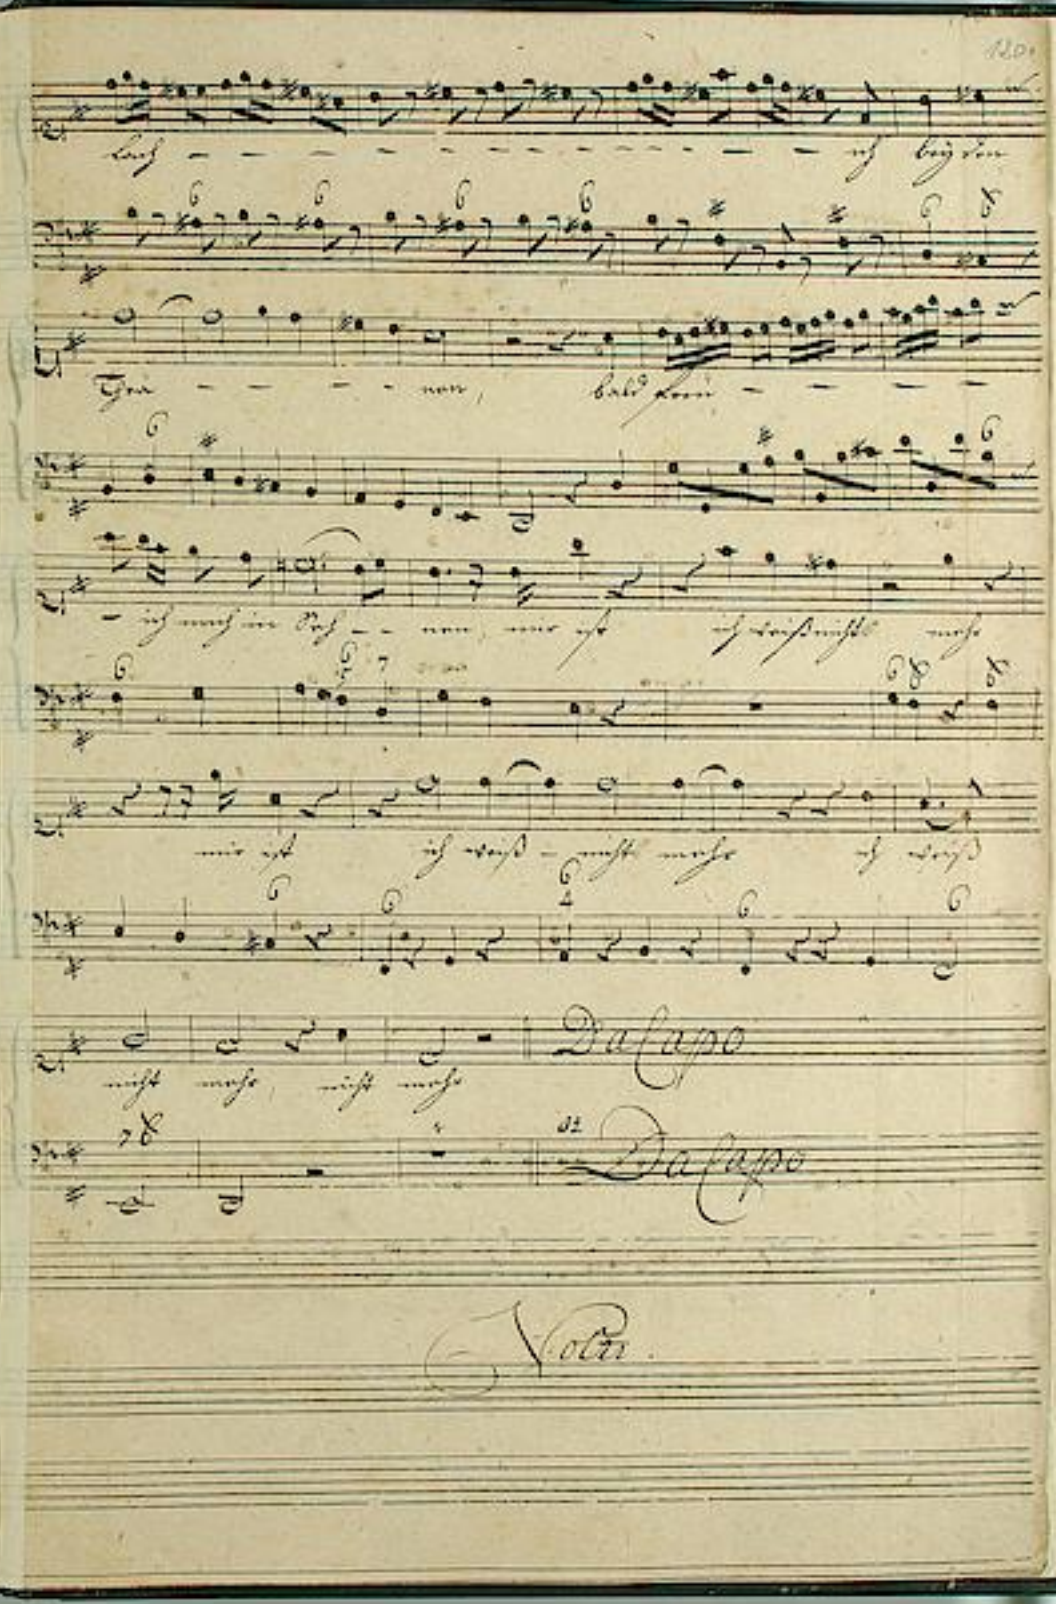 120.
lach - - - - - - - - - - - - ich bey den
6 6 6 6 6 8
Thrä - - - - - nen, bald freu - - - -
6 6
- ich mich in Seh - - nen, mir ist ich weiß nichts mehr
6 6 7 6 8 8
mir ist ich weiß - nichts mehr ich weiß
6 6 6 4 6 6
nicht mehr, nicht mehr Da Capo
7 8 Da Capo
Volti.